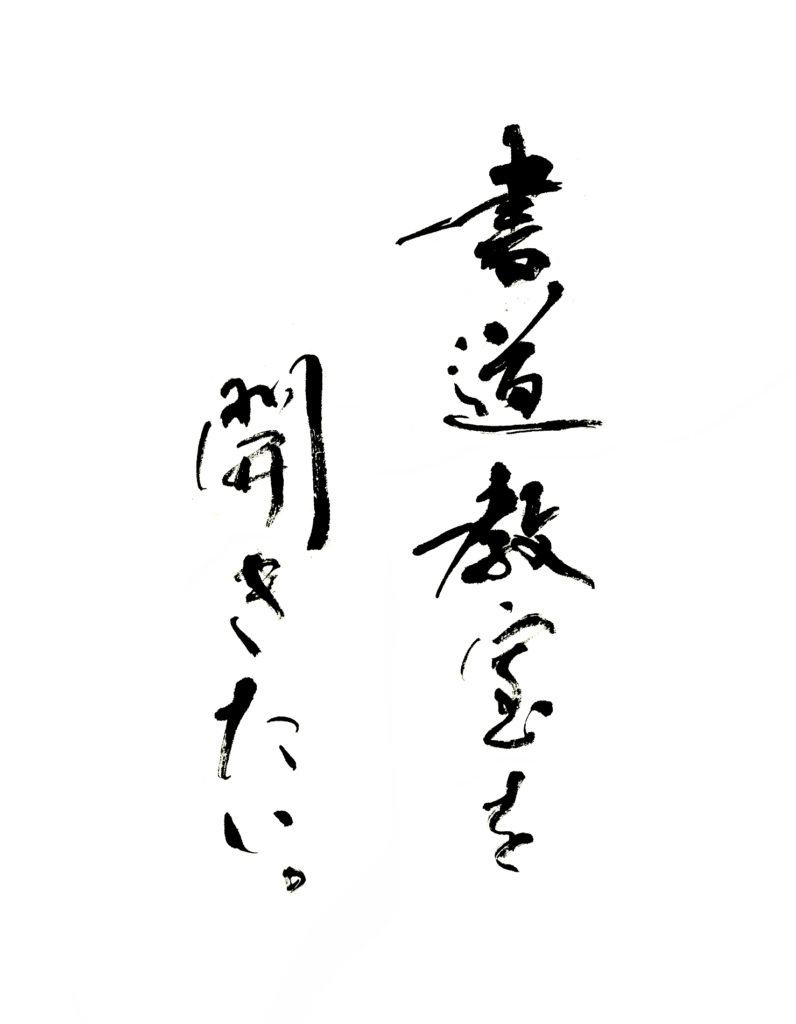 書道教室を
開きたい。